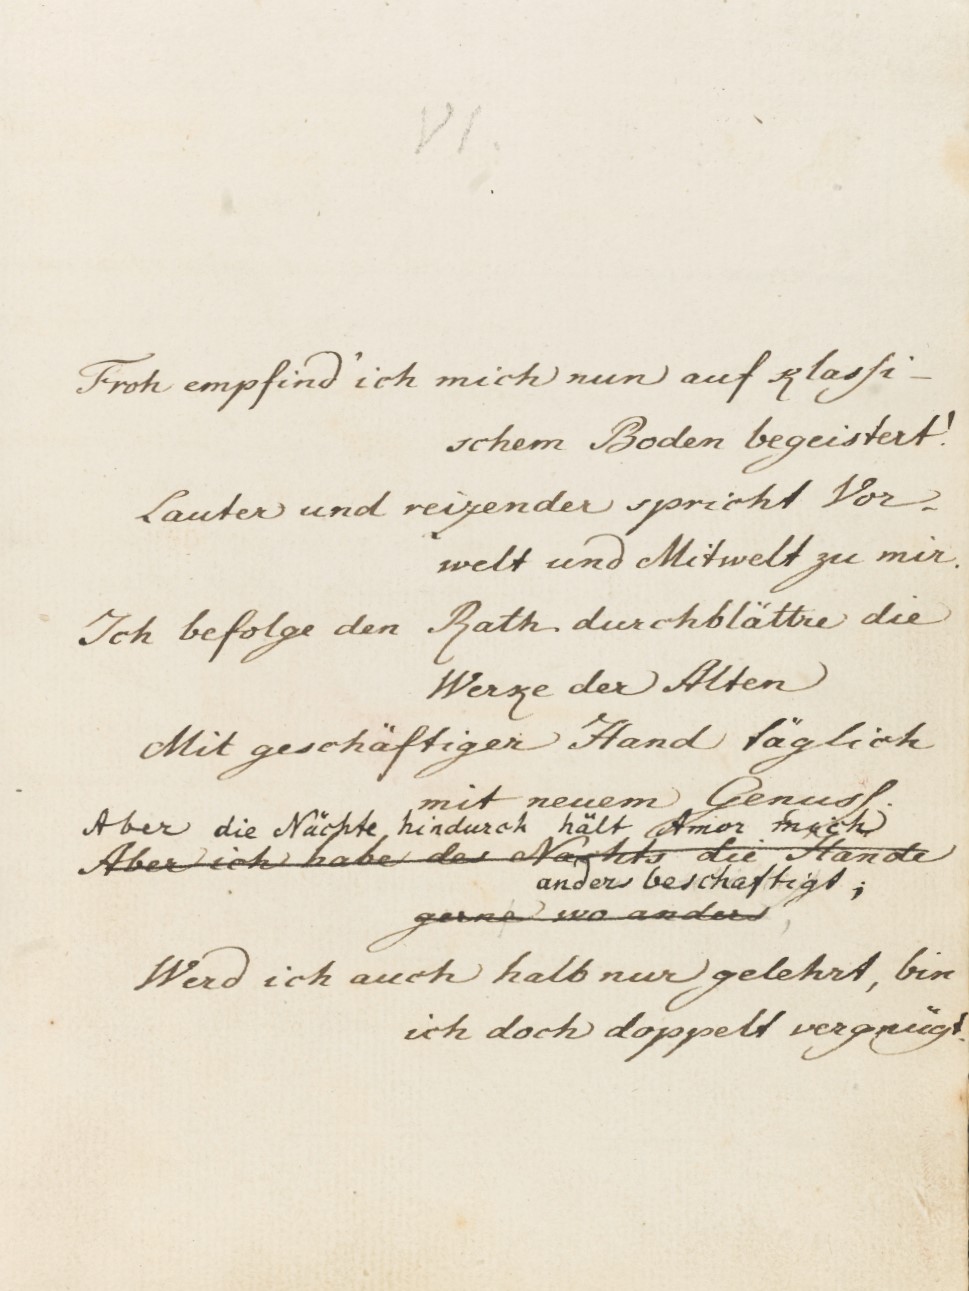 VI.
Froh empfind' ich mich nun auf klassi-
schem Boden begeistert!
Lauter und reizender spricht Vor-
welt und Mitwelt zu mir.
Ich befolge den Rath. durchblättre die
Werke der Alten
Mit geschäftiger Hand täglich
mit neuem Genuss.
Aber die Nächte hindurch hält Amor mich
Aber ich habe des Nachts die Hände
anders beschäftigt;
gerne wo anders
Werd ich auch halb nur gelehrt, bin
ich doch doppelt vergnügt.